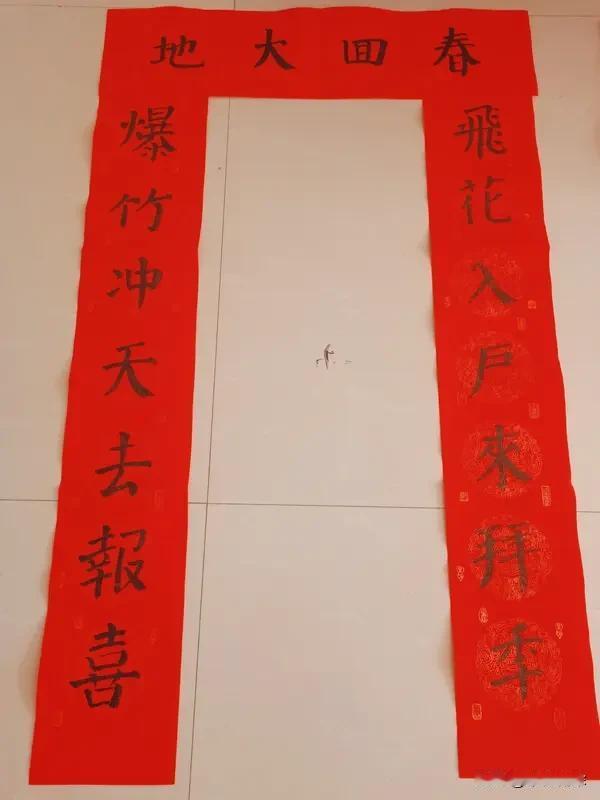 春囬大地
飛花入户來拜年
爆竹冲天去報喜